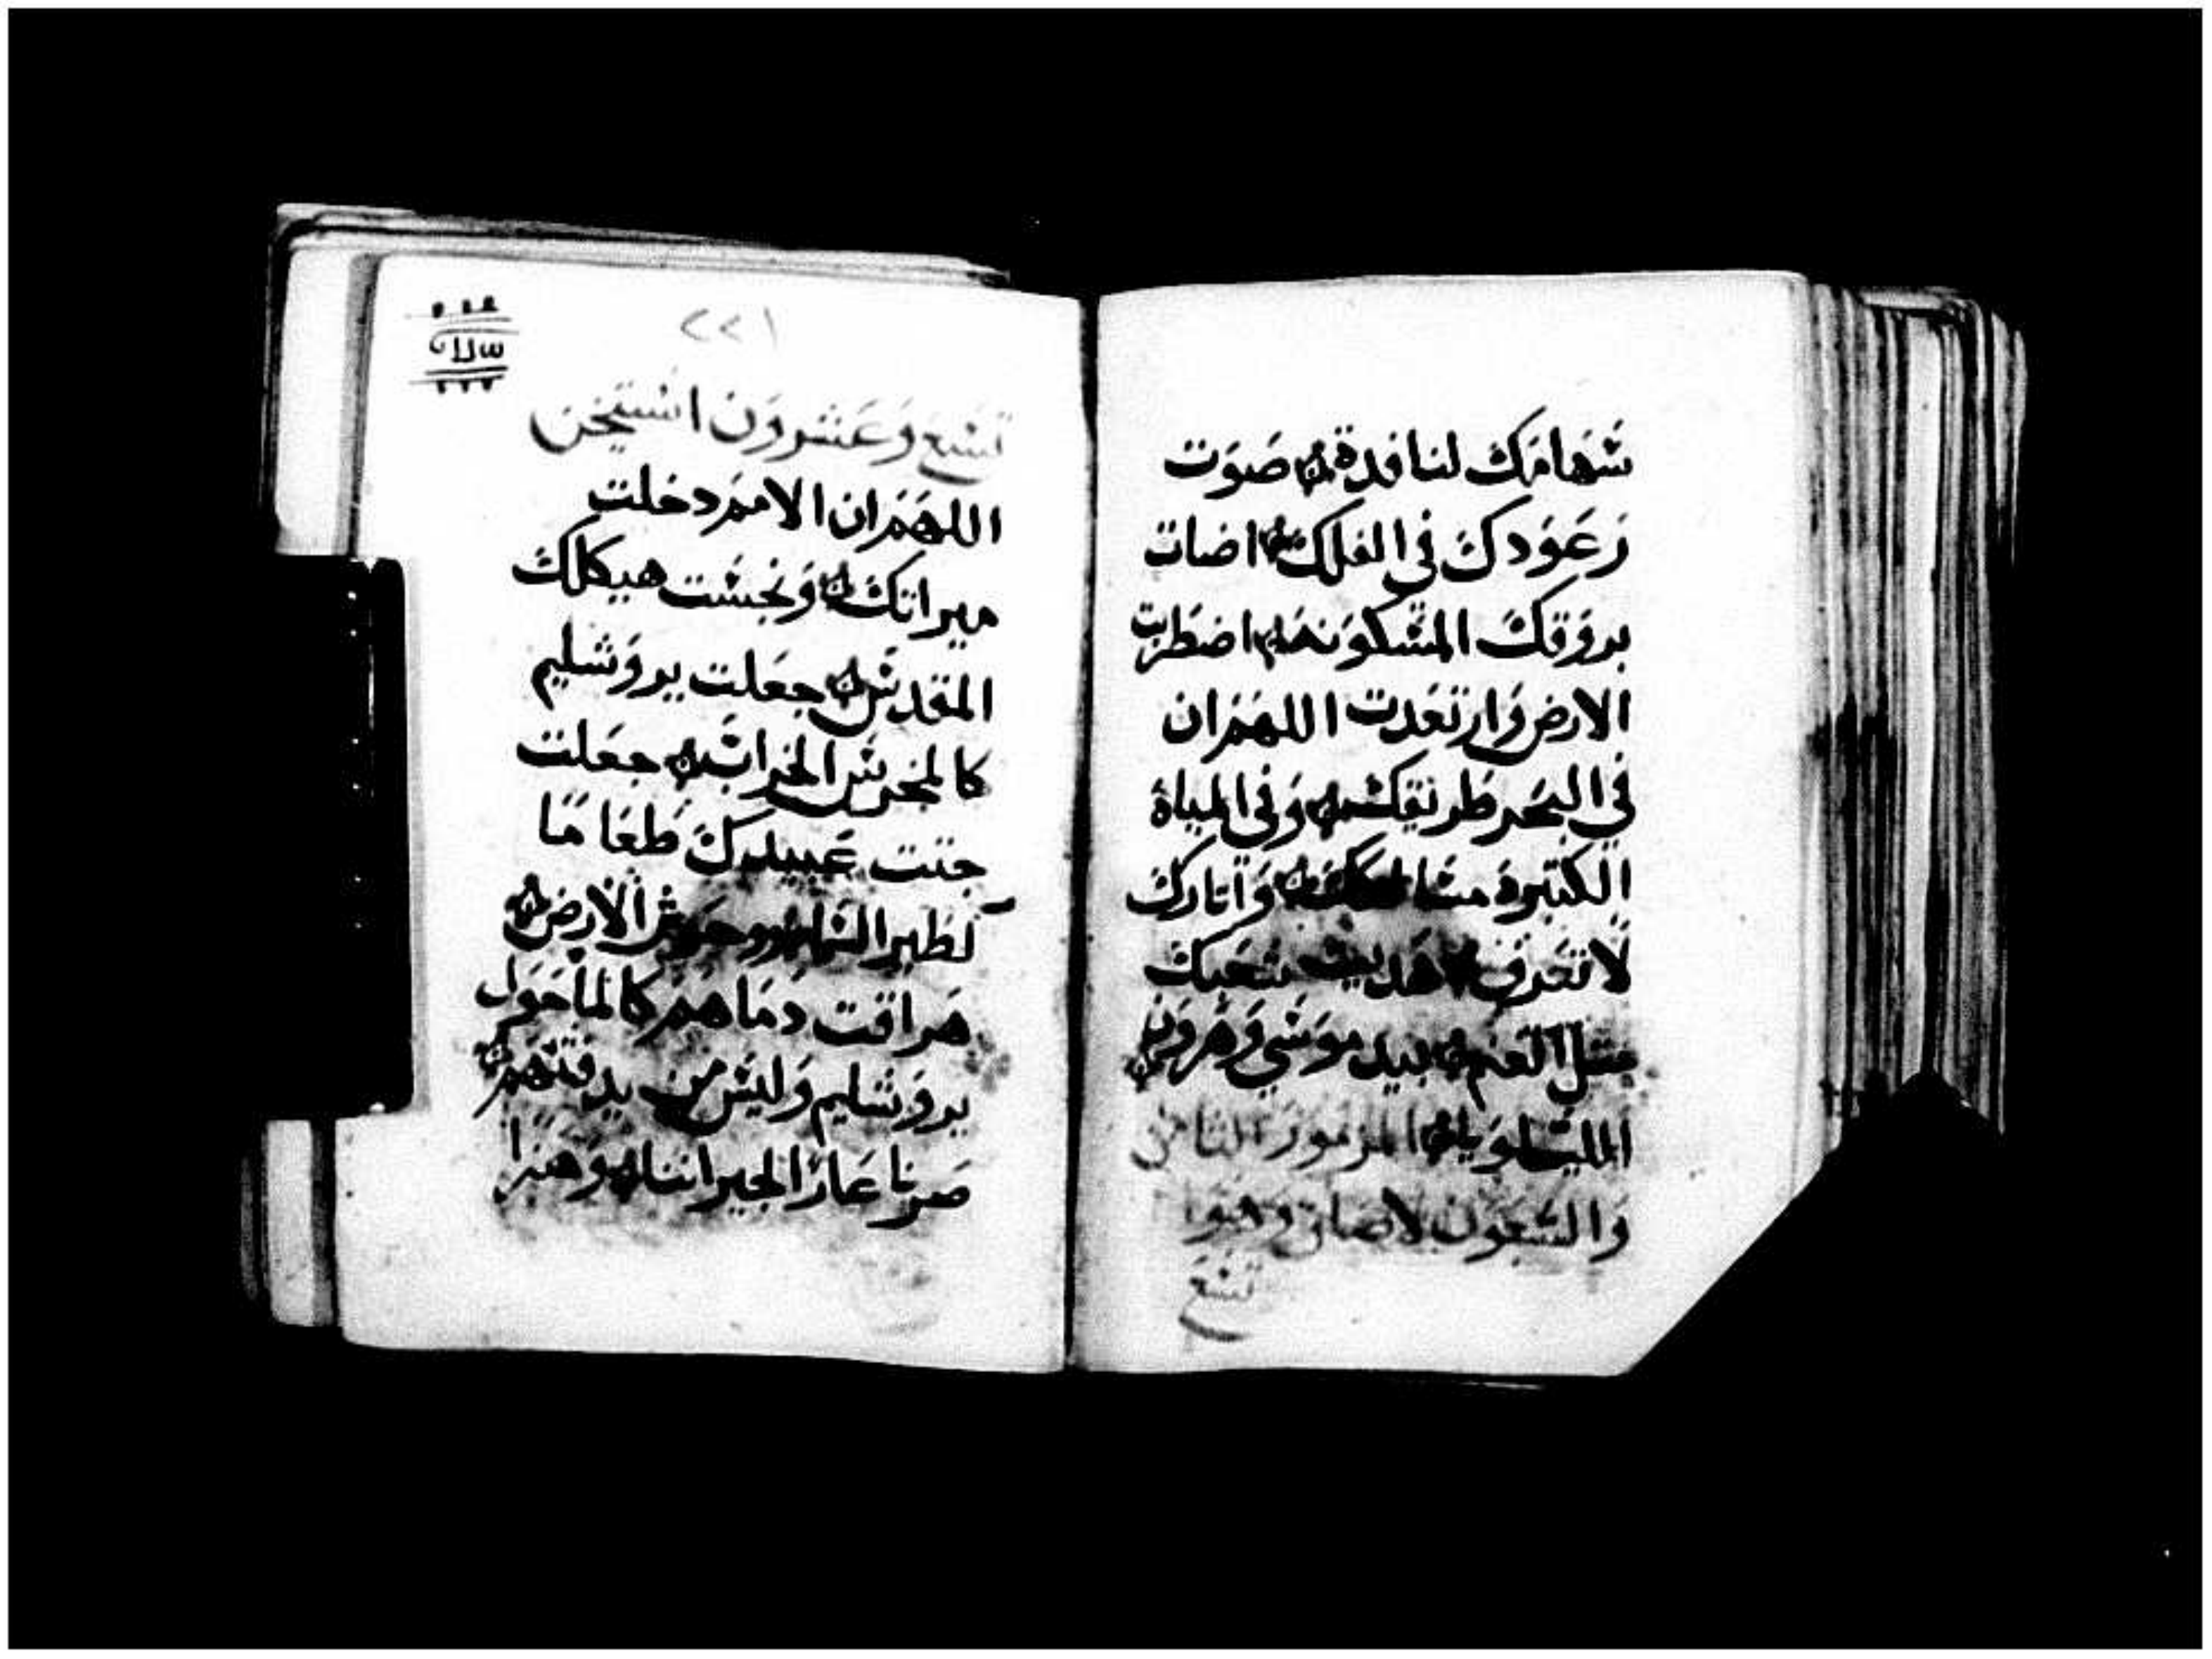 سهامك لنافدة صوت
رعودك في الفلك اضات
بروقك المسكونه اضطربت
الارض وارتعدت اللهم ان
في البحر طريقك وفي المياة
الكتيرة وآتارك
لا تعرف هديت شعبك
متل الغنم بيد موسي وهرون
الليلويا المزمور التامن
والسبعون لاصاف وهوا
تسع
٢٢١
تسع وعشرون استيخن
اللهم ان الامم دخلت
ميراتك ونجست هيكلك
المقدس جعلت يروشليم
كالمحرس الخراب جعلت
جتت عبيدك طعاما
لطير السما ووحوش الارض
هراقت دماهم كالما حول
يروشليم وليس من يدفنهم
صرنا عارا لجيراننا وهزا